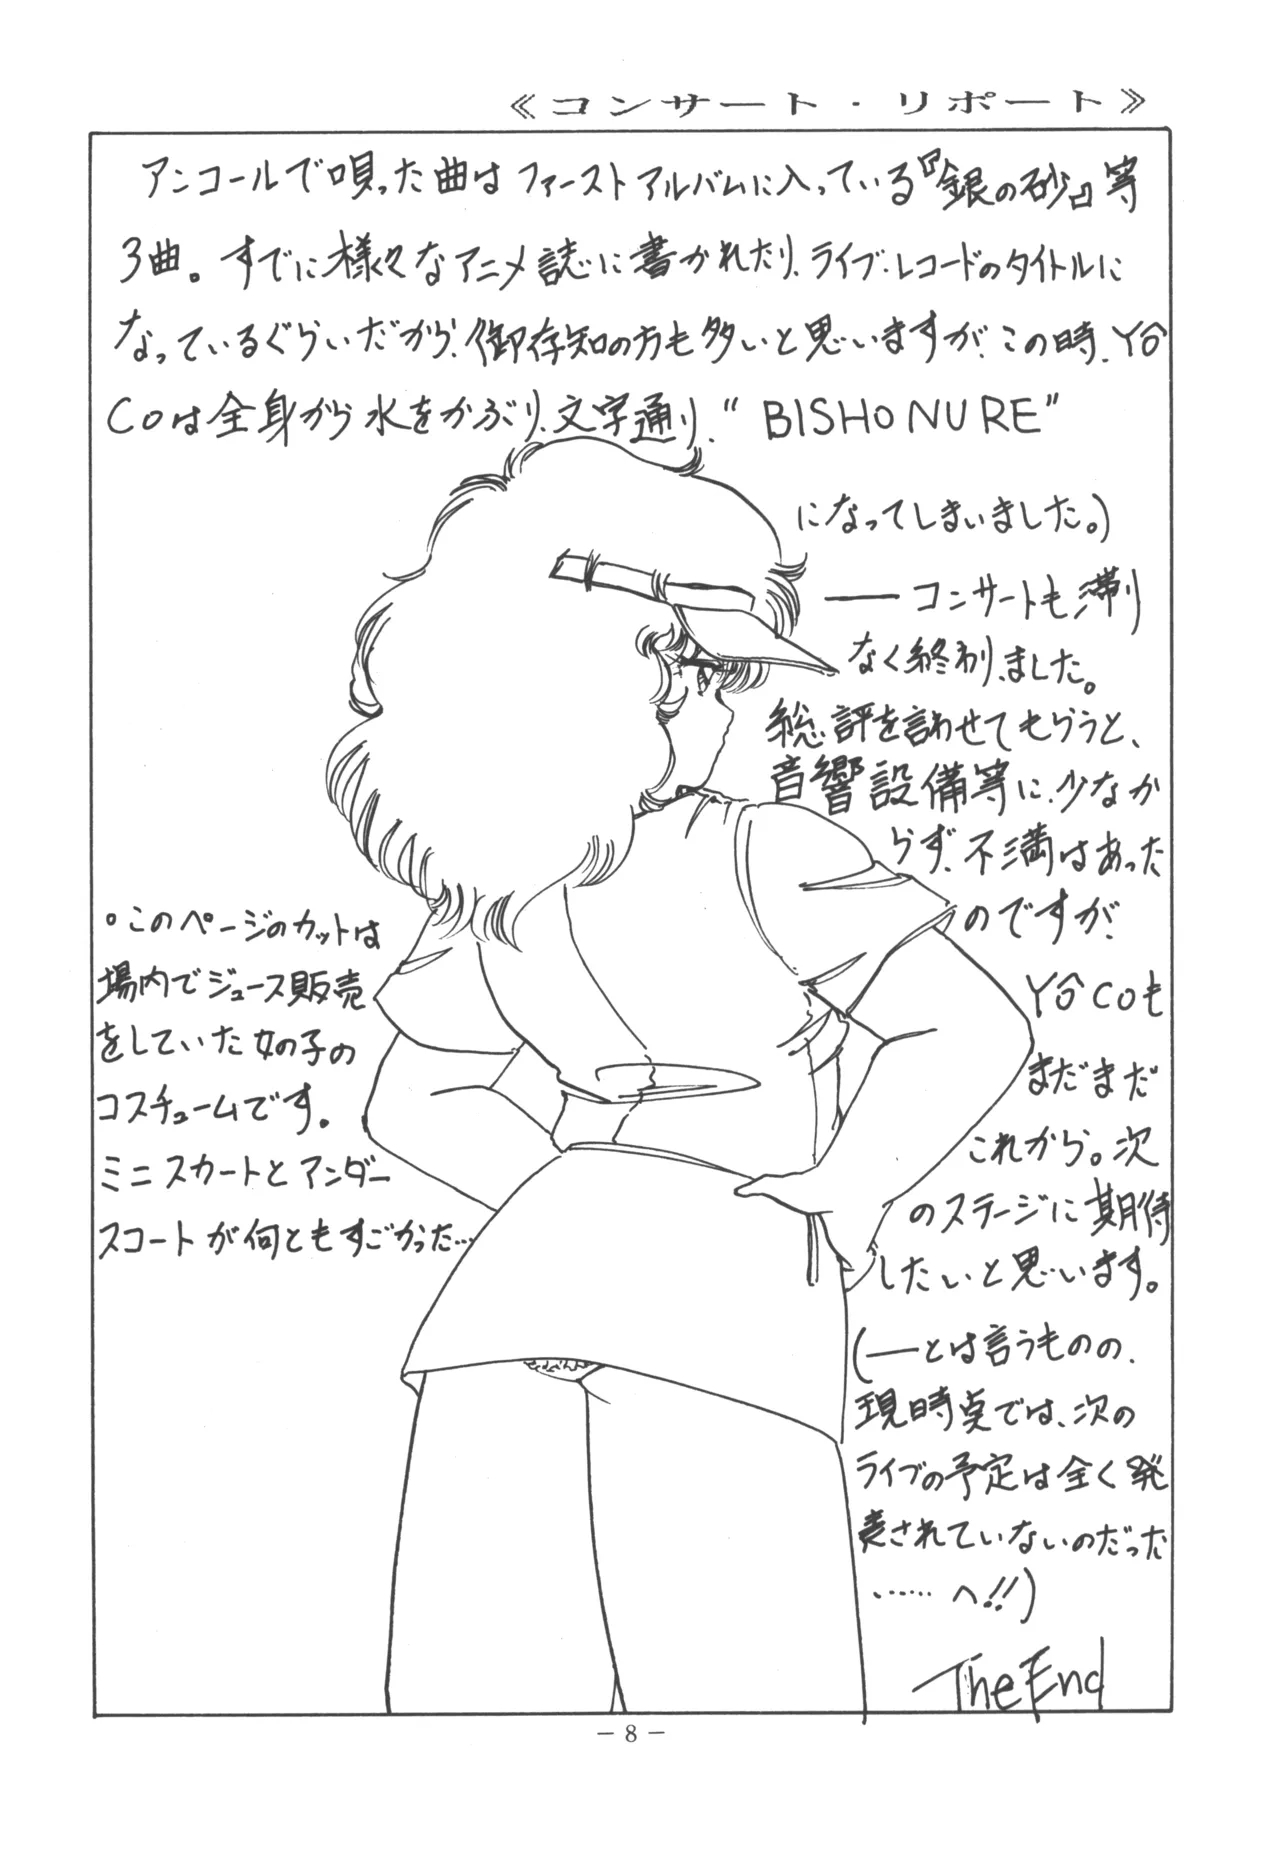 《コンサート・リポート》
アンコールで唄った曲はファーストアルバムに入っている『銀の砂』等
3曲。すでに様々なアニメ誌に書かれたり、ライブ・レコードのタイトルに
なっているぐらいだから、御存知の方も多いと思いますが、この時、YŌ
COは全身から水をかぶり、文字通り、“BISHO NURE”
になってしまいました。)
――コンサートも滞り
なく終わりました。
総評を言わせてもらうと、
音響設備等に、少なか
らず、不満はあった
のですが、
YŌCOも
まだまだ
これから。次
のステージに期待
したいと思います。
(――とは言うものの、
現時点では、次の
ライブの予定は全く発
表されていないのだった
……へ!!)
The End
。このページのカットは
場内でジュース販売
をしていた女の子の
コスチュームです。
ミニスカートとアンダー
スコートが何ともすごかった…
－8－